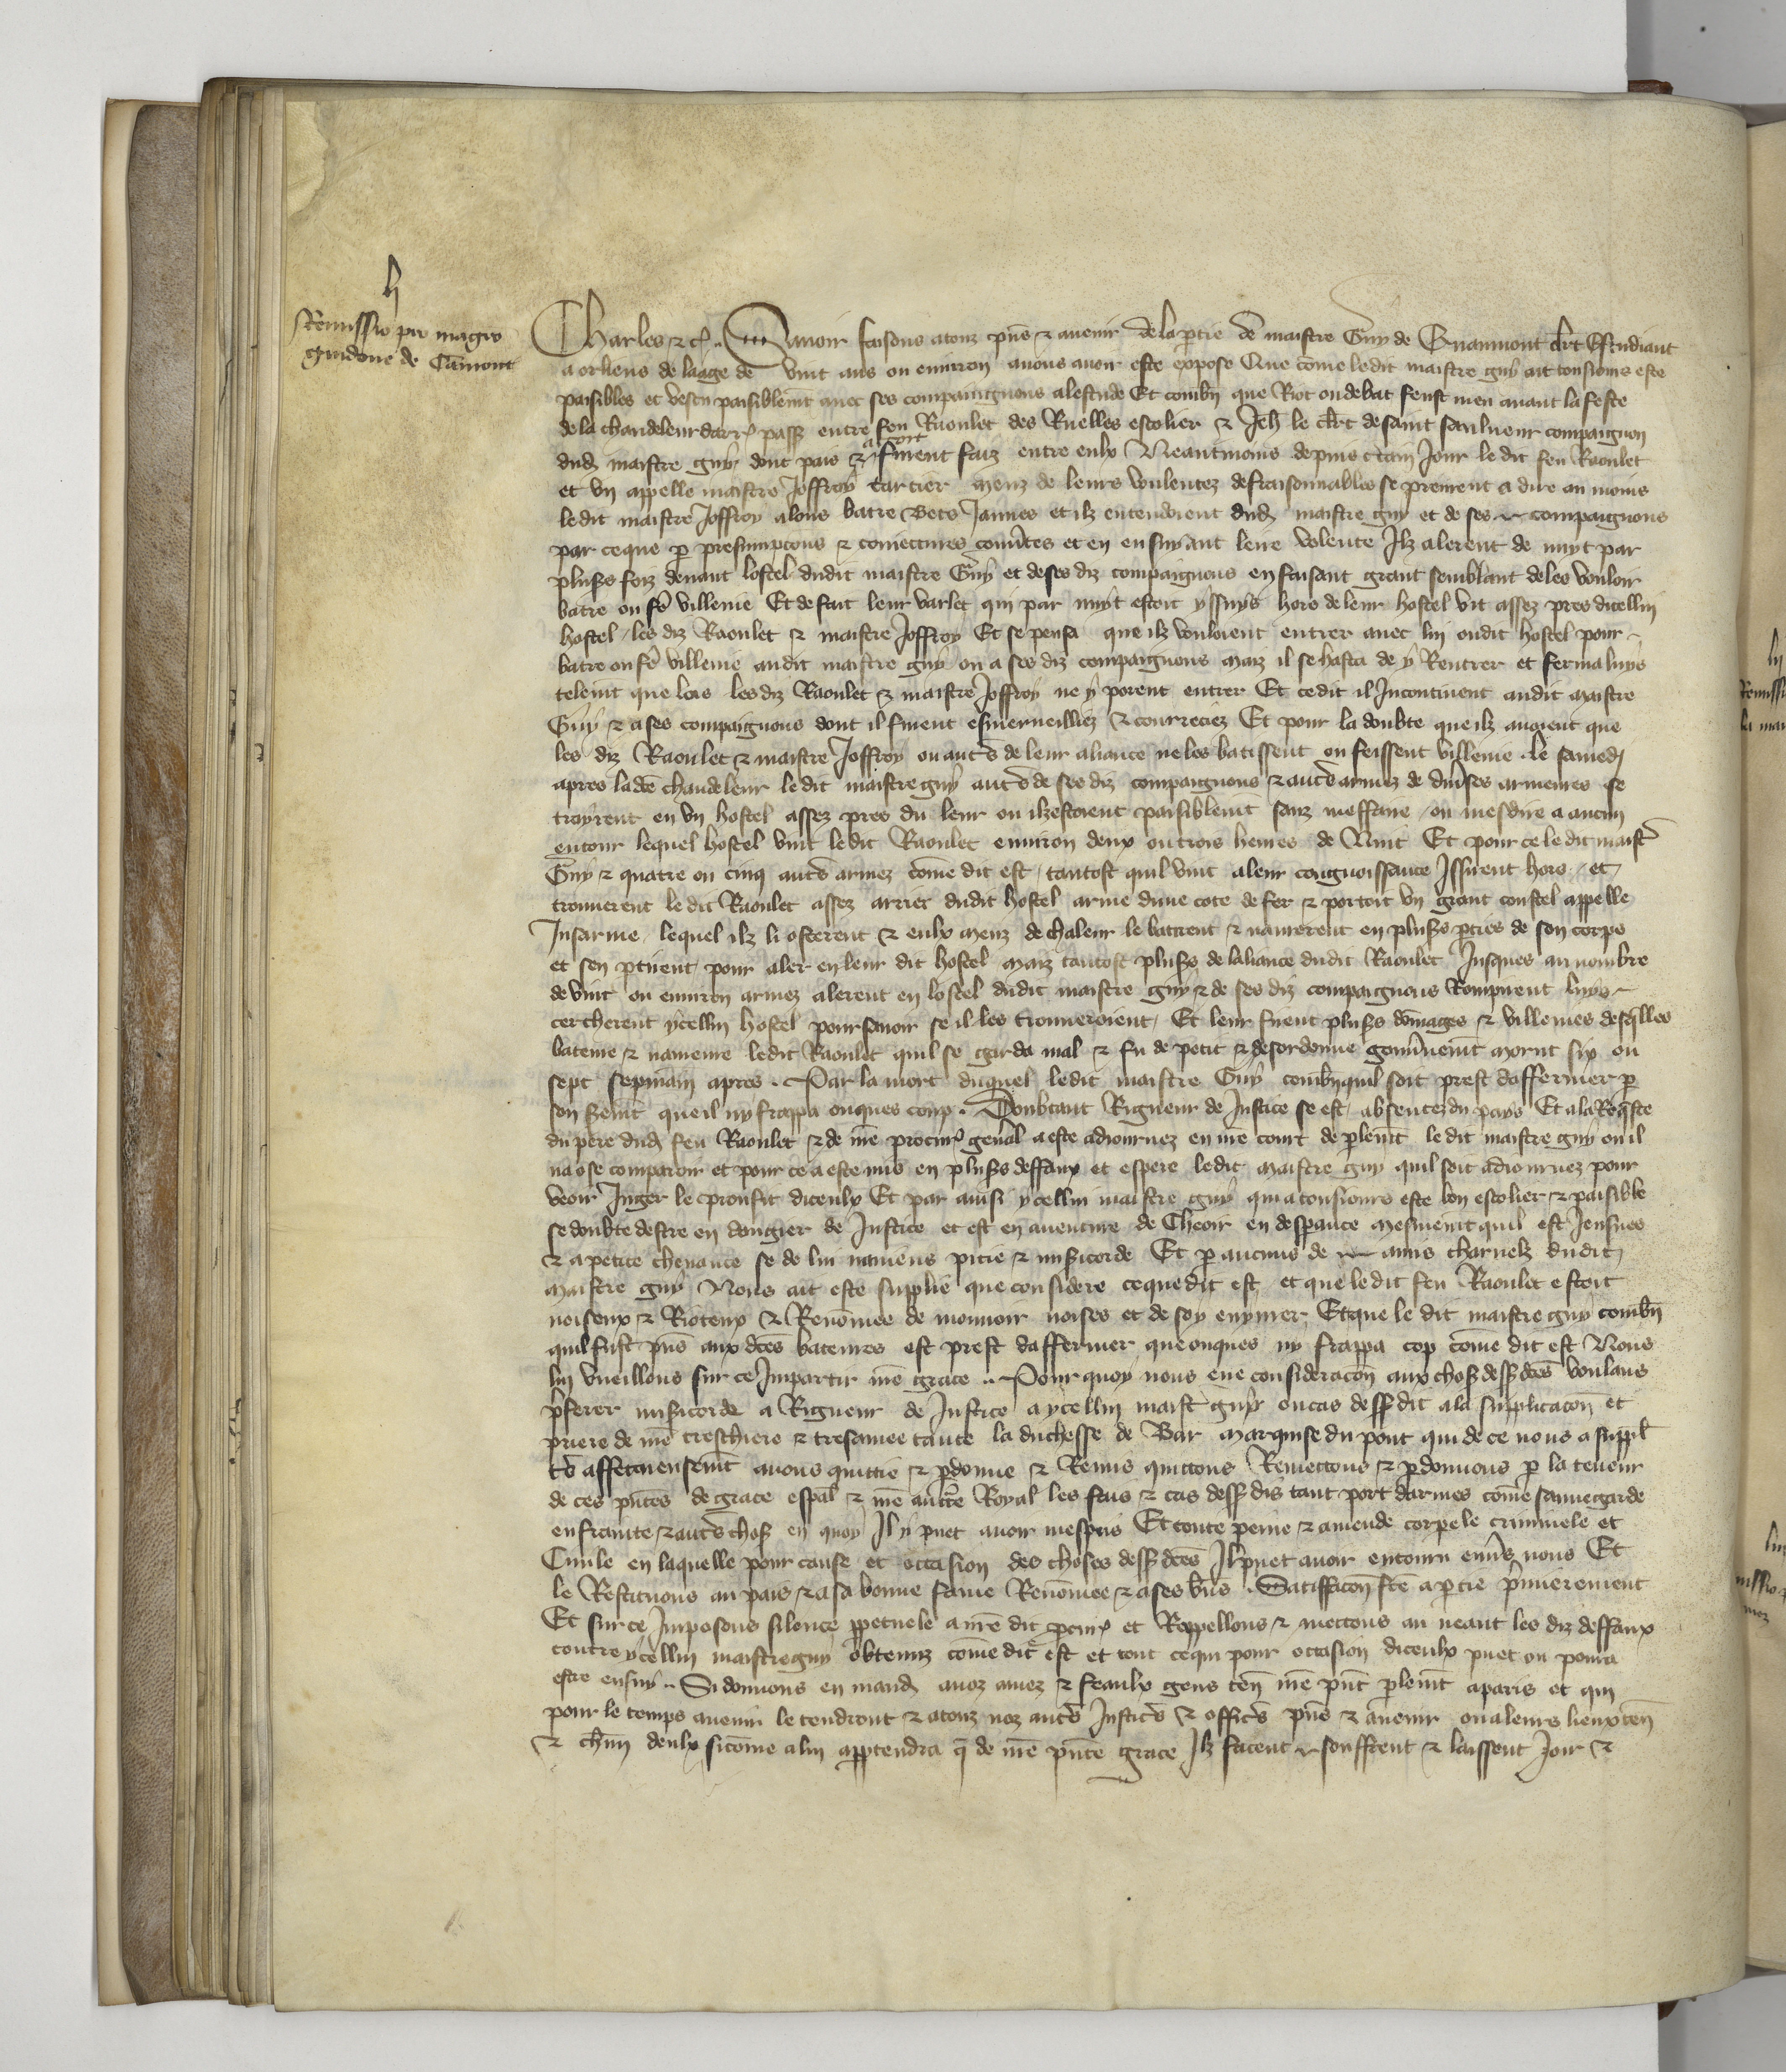 h
Remissio pro magro
guidone de Caumont
Charles &c. Sauoir faisons a touz pns & auenir de la ptie de maistre Guy de Guaumont clrt Estudiant
a orliens de laage de vint ans ou enuiron a nous auoir este expose Que cõme ledit maistre guy ait tousiours este
paisibles et vescu paisiblemt auec ses compaignons a lestude Et combn que Riot ou debat feust meu auant la feste
de la chandeleur darr passe entre feu Raoulet des Ruelles escolier & Jeh le clrt de saint sauueur compaignon
dud maistre guy dont pais & acort furent faiz entre eulx Neantmoins depuis ctain Jour ledit feu Raoulet
et vn appelle maistre Joffroy tartier meuz de leurs voulentez desraisonnables se prerent a dire au moins
ledit maistre Joffroy alons batre Becs Jaunes et ilz entendoient dud maistre guy et de ses compaignons
par ce que p presumpcons & coniectures et en ensuyuant leur volente Ilz alerent de nuyt par
plus foiz deuant lostel dudit maistre Guy et de ses diz compaignons en faisant grant semblant de les vouloir
batre ou fe villenie Et de fait leur varlet qui par nuyt estoit yssuys hors de leur hostel vit assez pres dicellui
hostel les diz Raoulet & maistre Joffroy Et se pensa que ilz vouloient entrer auec lui oudit hostel pour
batre ou fe villenie audit maistre guy ou a ses diz compaignons maiz il se hasta de y Rentrer et ferma luys
telemt que lors les diz Raoulet & maistre Joffroy ne y porent entrer Et ce dit il Incontinent audit maistre
Guy & a ses compaignons dont il furent esmerueilliez & courreciez Et pour la doubte que ilz auoient que
les diz Raoulet & maistre Joffroy ou auts de leur aliance ne les batissent ou feissent villenie le samed
apres lad chandeleur ledit maistre guy auts de ses diz compaignons & auts armez de diuses armeures se
trayrent en vn hostel assez pres du leur ou ilz estoient paisiblemt sanz meffaire ou mesdire a aucun
entour lequel hostel vint ledit Raoulet enuiron deux ou trois heures de Nuit Et pour ce ledit maist
Guy & quatre ou cinq auts armez cõme dit est tantost quil vint a leur congnoissance Issirent hors et
trouuerent ledit Raoulet assez arriet dudit hostel arme dune cote de fer & portoit vn grant coustel appelle
Jusarme lequel ilz li osterent & eulx meuz de chaleur le batirent & naurerent en plus pties de son corps
et sen ptirent pour aler en leur dit hostel maiz tantost plus de laliance dudit Raoulet Jusques au nombre
de vint ou enuiron armez alerent en lostel dudit maistre guy & de ses diz compaignons Rompirent luys
cercherent ycellui hostel pour sauoir se il les trouueroient Et leur firent plus dõmages & villenies desqlles
bateure & naureure ledit Raoulet quil se garda mal & fu de petit & desordonne gouunemt morut six ou
sept sepmain apres Par la mort duquel ledit maistre Guy combn quil soit prest dafferner p
son semt que il ny frappa onques coup Doubtant Rigueur de Justice se est absentez du pays Et a la Reqste
du pere dud feu Raoulet & de nre procur genal a este adiournez en nre court de plemt ledit maistre guy ou il
na ose comparoir et pour ce a este mis en plus deffaux et espere ledit maistre guy quil soit adiournez pour
veoir Juger le proufit diceulx Et par ainsi ycellui maistre guy qui a tousiours este bon escolier & paisible
se doubte destre en dangier de Justice et est en auenture de cheoir en despance mesmemt quil est Jeusnes
& a petite cheuance se de lui nauiens pitie & misicorde Et p aucuns de amis charnelz dudit
maistre guy Nous ait este supplie que considere ce que dit est et que ledit feu Raoulet estoit
noiseux & Rioteux & Renõmee de mouuoir noises et de soy enyurer Et que le dit maistre guy combn
quil fust pns aux dces bateures est prest dafferner que onques ny frappa cop cõme dit est Nous
lui vueillons sur ce Impartir nre grace Pour quoy nous eue consideracon aux chos dess dces voulans
pferer misicorde a Rigueur de Justice a ycellui maist guy ou cas dess dit a la supplicacon et
priere de nre treschiere & tresamee tante la duchesse de Bar marquise du pont qui de ce nous a suppl
ts affectueusemt auons quittie & pdonne & Remis quictons Remettons & pdonnons p la teneur
de ces pntes de grace espal & nre auctte Royal les fais & cas dess dis tant port darmes cõme sauuegarde
enfrainte & auts chos en quoy Il y puet auoir mespris Et toute peine & amende corpele criminele et
Ciuile en laquelle pour cause et occasion des choses dess dces Il puet auoir encouru enus nous Et
le Restituons au pais & a sa bonne fame Renõmee & a ses bns Satisfacon fce a ptie pmierement
Et sur ce Imposons silence ppetuele a nre dit pcur et Rappellons & mettons au neant les diz deffaux
contre ycellui maistre guy obtenuz cõme dit est et tout ce qui pour occasion diceulx puet ou pourra
estre ensuy Si donnons en mand a noz amez & feaulx gens ten nre pnt plemt a paris et qui
pour le temps auenir le tendront & a touz noz auts Justics & offics pns & auenir ou a leurs lieuxten
& chun deulx si cõme a lui apptendra q de nre pnte grace Ilz facent seuffrent & laissent Joir &